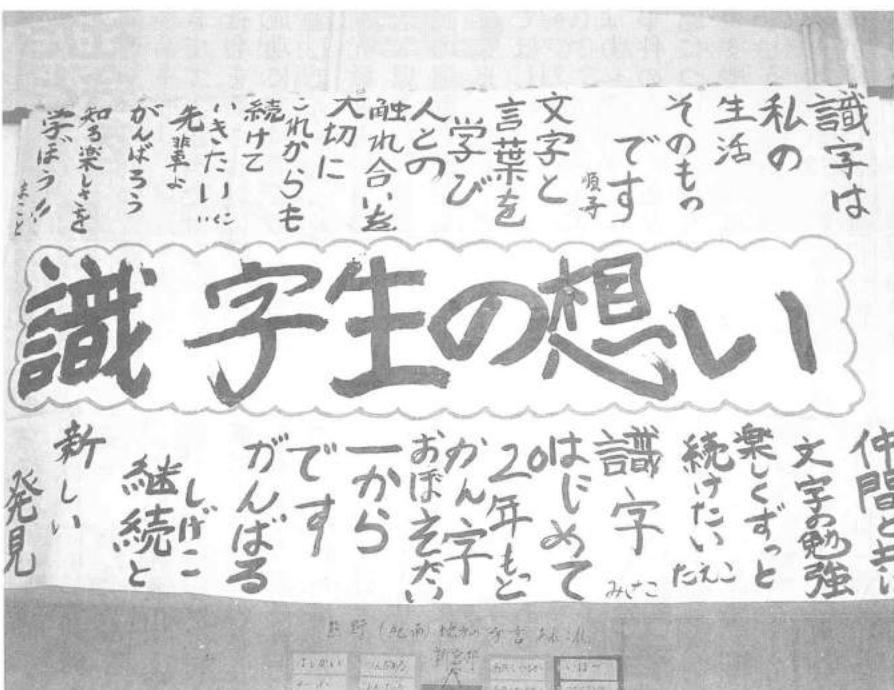 識字は
私の
生活
そのもの
です
順子
文字と
言葉を
学び
人との
触れ合いを
大切に
これからも
続けて
いきたい
先輩よ
がんばろう
知る楽しさを
学ぼう!!
まこと
識字生の想い
仲間と共に
文字の勉強
楽しくずっと
続けたい
たえこ
識字
みさこ
はじめて
20年もと
かん字
おぼえたい
一から
です
がんばる
しげこ
継続と
新しい
発見